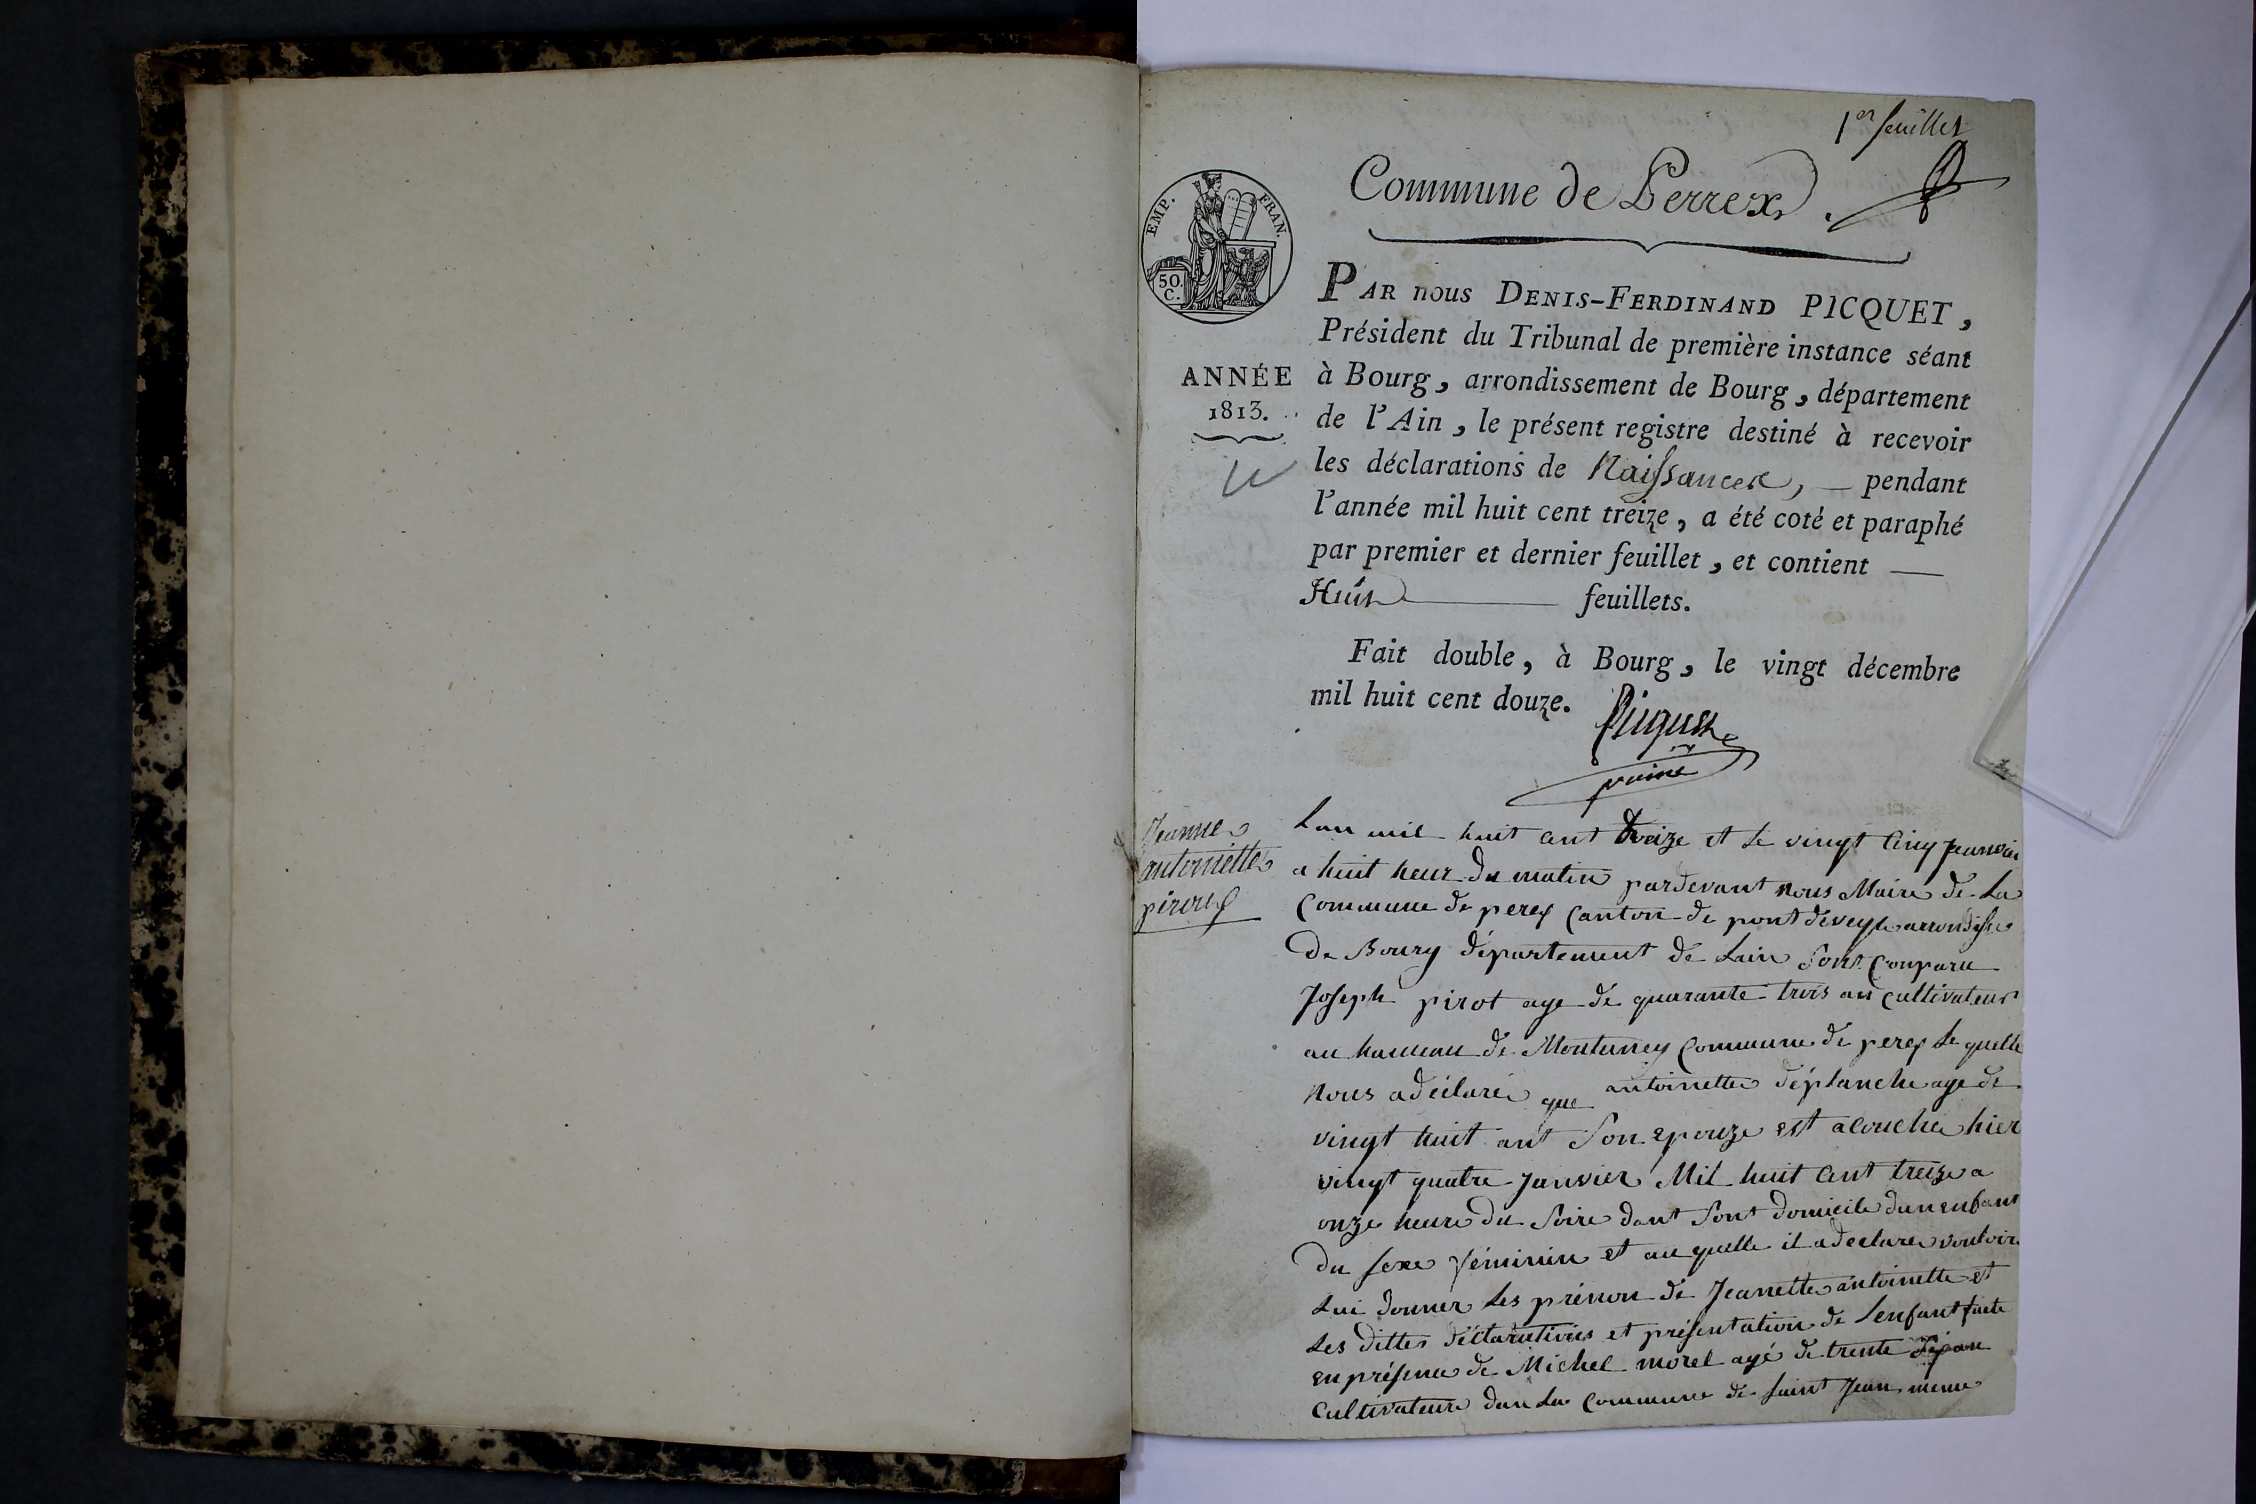 1er feuillet
Commune de Perrex.
EMP. FRAN.
50. C.
PAR nous DENIS-FERDINAND PICQUET,
Président du Tribunal de première instance séant
ANNÉE
1813.
à Bourg, arrondissement de Bourg, département
de l'Ain, le présent registre destiné à recevoir
les déclarations de Naissances, — pendant
l'année mil huit cent treize, a été coté et paraphé
par premier et dernier feuillet, et contient —
Huit feuillets.
Fait double, à Bourg, le vingt décembre
mil huit cent douze.
Picquet
Jeanne
antoinette
Lan mil huit cent treize et le vingt cinq Janvier
a huit heur du matin pardevant nous Maire de La
Commune de perex Canton de pont deveyle arrondisse
de Bourg département de Lain Sont Comparu
Joseph pirot age de quarante trois an cultivateur
au hameau de Monterney Commune de perex Le quelle
nous a déclaré que antoinette déplanche age de
vingt huit ant Son epouze est acouche hier
vingt quatre Janvier Mil huit cent treize a
onze heure du Soire dant Sont domicile dun enfant
du sexe féminin et au quelle il a declare vouloir
Lui donner Les prénon de Jeanette antoinette et
Les dittes déclarations et présentation de Lenfant faite
en présence de Michel morel agé de trente
Cultivateur dan La Commune de saint Jean